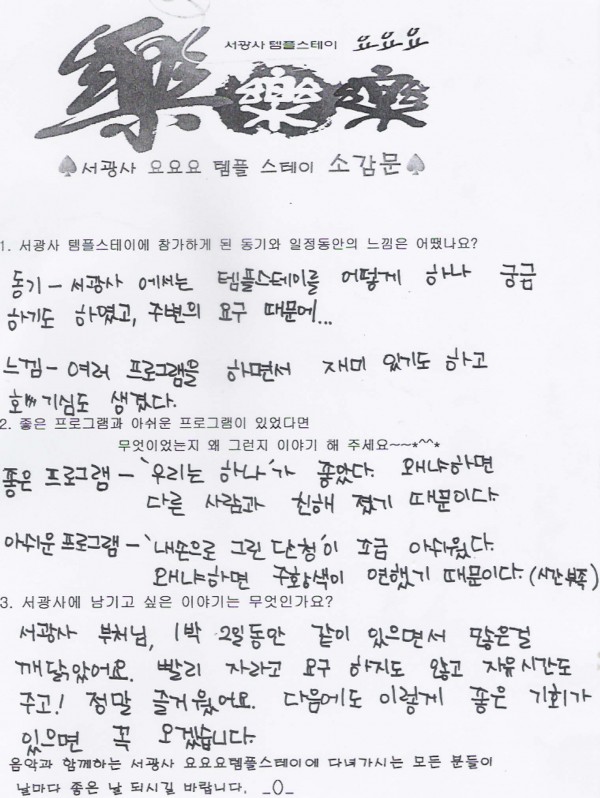 서광사 템플스테이 요요요
樂 樂 樂
♠서광사 요요요 템플 스테이 소감문♠
1. 서광사 템플스테이에 참가하게 된 동기와 일정동안의 느낌은 어땠나요?
동기 - 서광사 에서는 템플스테이를 어떻게 하나 궁금
하기도 하였고, 주변의 요구 때문에...
느낌 - 여러 프로그램을 하면서 재미 있기도 하고
호기심도 생겼다.
2. 좋은 프로그램과 아쉬운 프로그램이 있었다면
무엇이었는지 왜 그런지 이야기 해 주세요~~*^^*
좋은 프로그램 - '우리는 하나'가 좋았다. 왜냐하면
다른 사람과 친해 졌기 때문이다.
아쉬운 프로그램 - '내손으로 그린 단청'이 쪼금 아쉬웠다.
왜냐하면 주황색이 연했기 때문이다. (시간부족)
3. 서광사에 남기고 싶은 이야기는 무엇인가요?
서광사 부처님, 1박 2일동안 같이 있으면서 많은걸
깨닭았어요. 빨리 자라고 요구 하지도 않고 자유시간도
주고! 정말 즐거웠어요. 다음에도 이렇게 좋은 기회가
있으면 꼭 오겠습니다.
음악과 함께하는 서광사 요요요템플스테이에 다녀가시는 모든 분들이
날마다 좋은 날 되시길 바랍니다. _()_